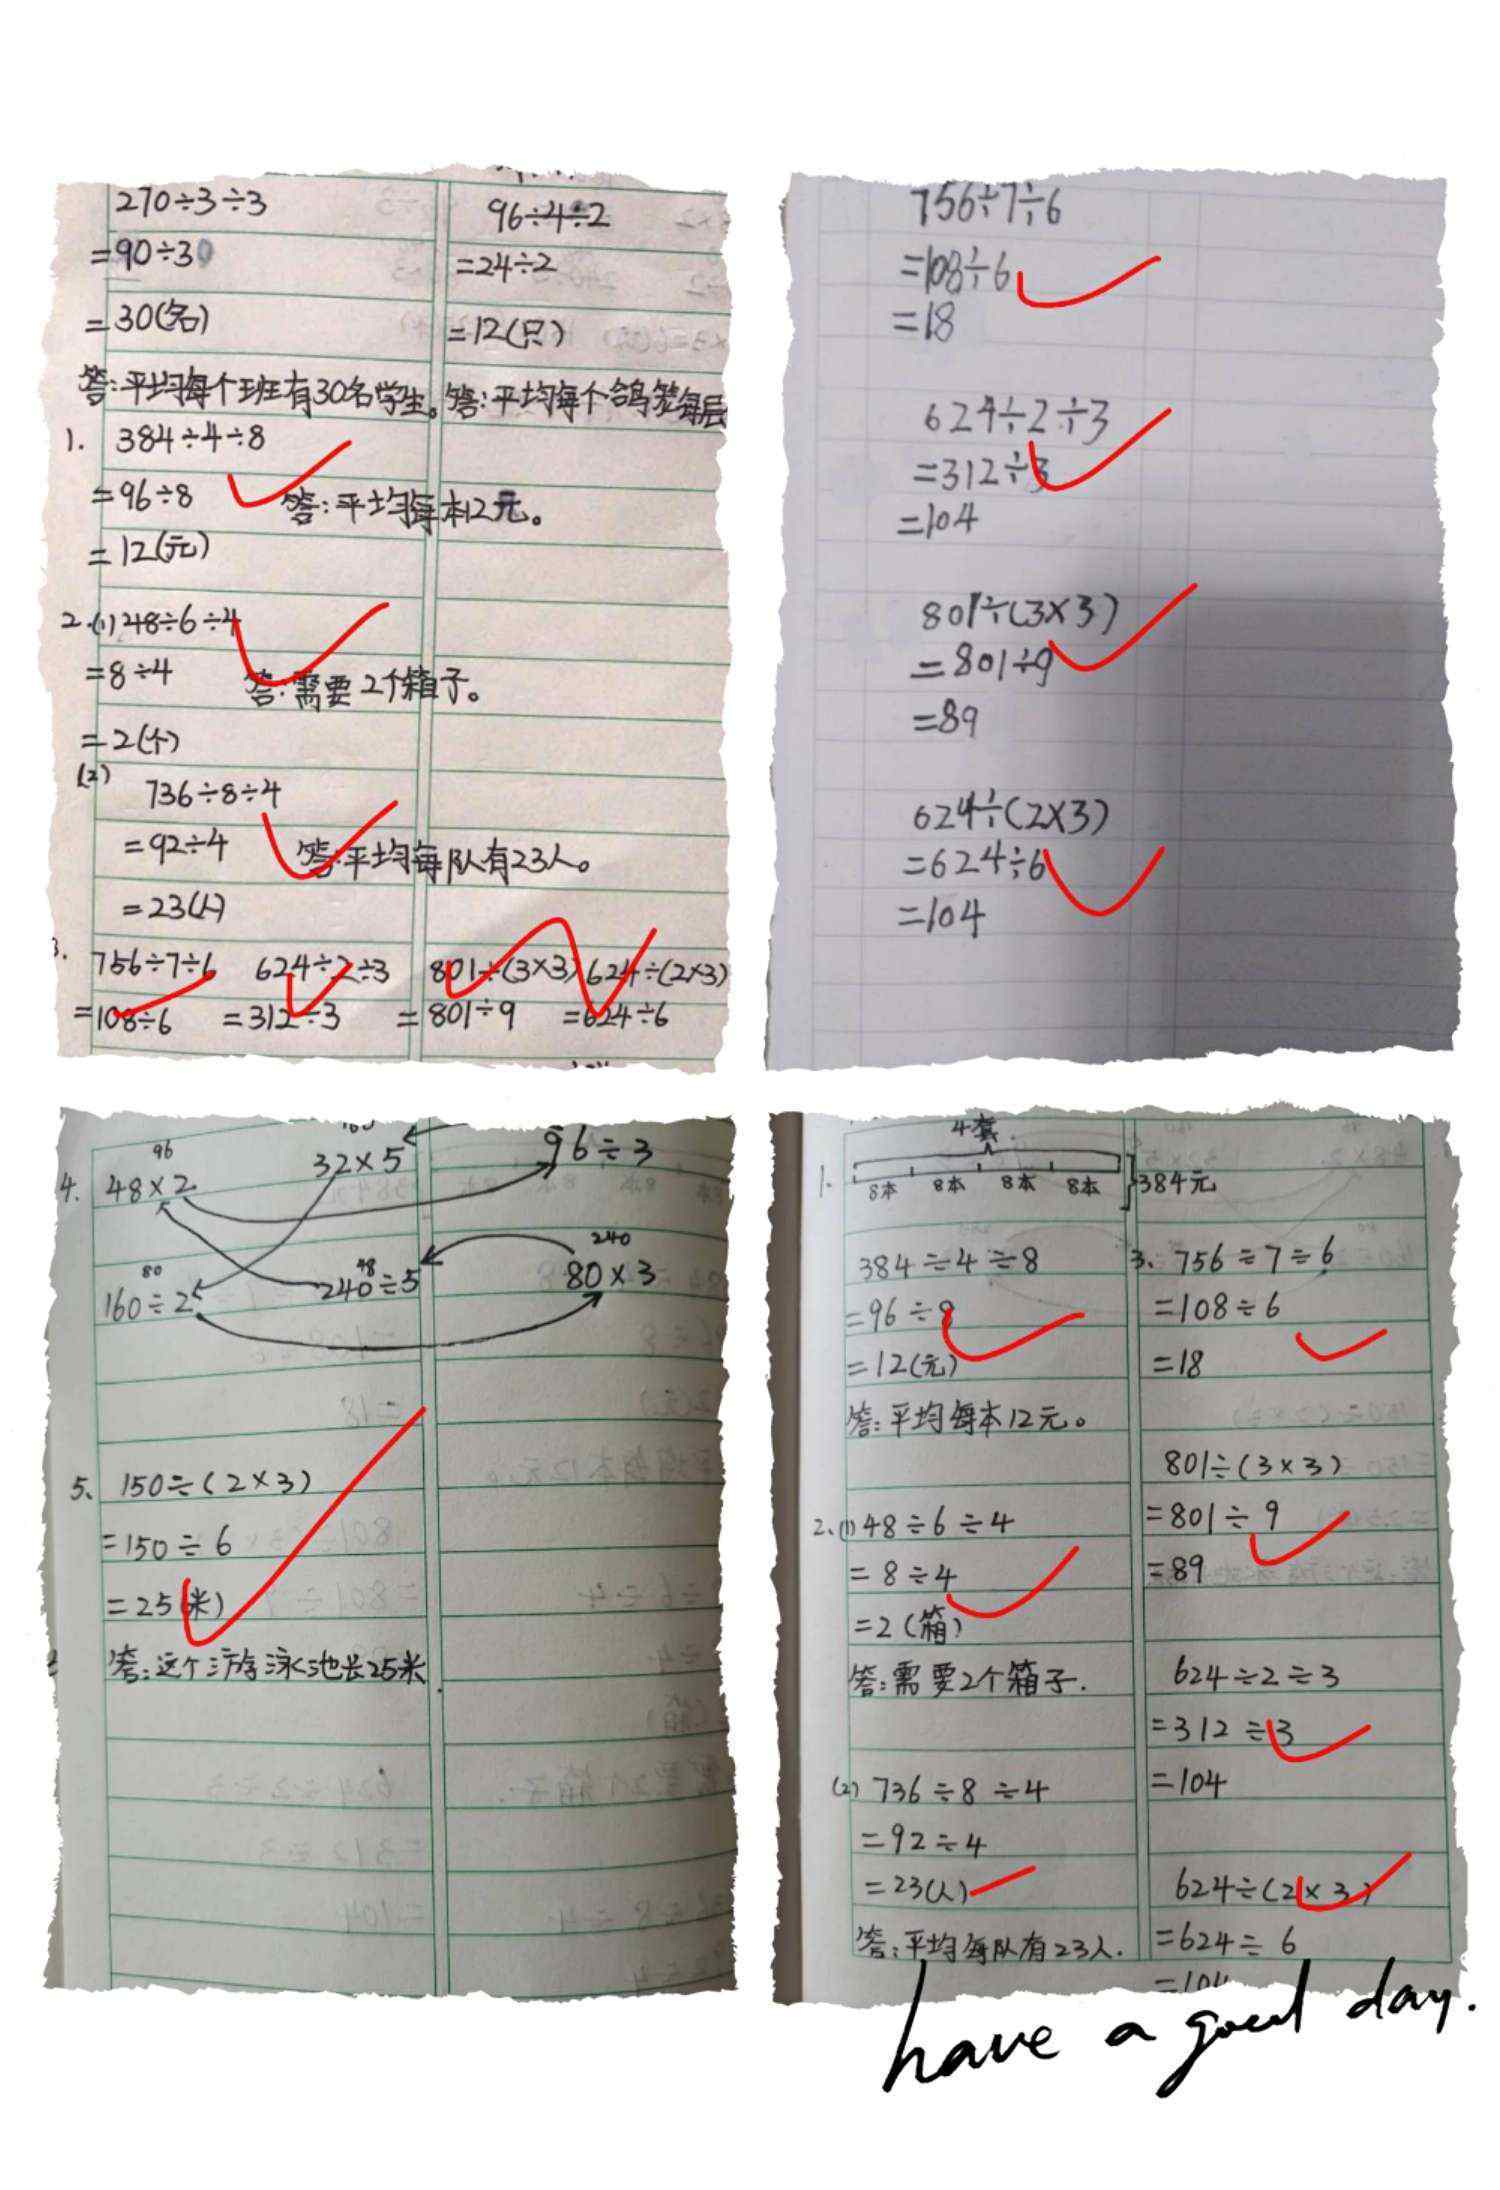 270÷3÷3
=90÷3
=30(名)
答:平均每个班有30名学生。
96÷4÷2
=24÷2
=12(只)
答:平均每个鸽笼每层
1. 384÷4÷8
=96÷8
=12(元)
答:平均每本12元。
2.(1)48÷6÷4
=8÷4
=2(个)
答:需要2个箱子。
(2)
736÷8÷4
=92÷4
=23(人)
答:平均每队有23人。
3.
756÷7÷6 624÷2÷3 801÷(3×3) 624÷(2×3)
=108÷6 =312÷3 =801÷9 =624÷6
756÷7÷6
=108÷6
=18
624÷2÷3
=312÷3
=104
801÷(3×3)
=801÷9
=89
624÷(2×3)
=624÷6
=104
96 160
4. 48×2 32×5 96÷3
80 48 240
160÷2 240÷5 80×3
5、 150÷(2×3)
=150÷6
=25(米)
答:这个游泳池长25米.
4套
1. 8本 8本 8本 8本 384元
384÷4÷8
=96÷8
=12(元)
答:平均每本12元。
2、(1)48÷6÷4
=8÷4
=2(箱)
答:需要2个箱子.
(2)736÷8÷4
=92÷4
=23(人)
答:平均每队有23人.
3、756÷7÷6
=108÷6
=18
801÷(3×3)
=801÷9
=89
624÷2÷3
=312÷3
=104
624÷(2×3)
=624÷6
=104
have a good day.